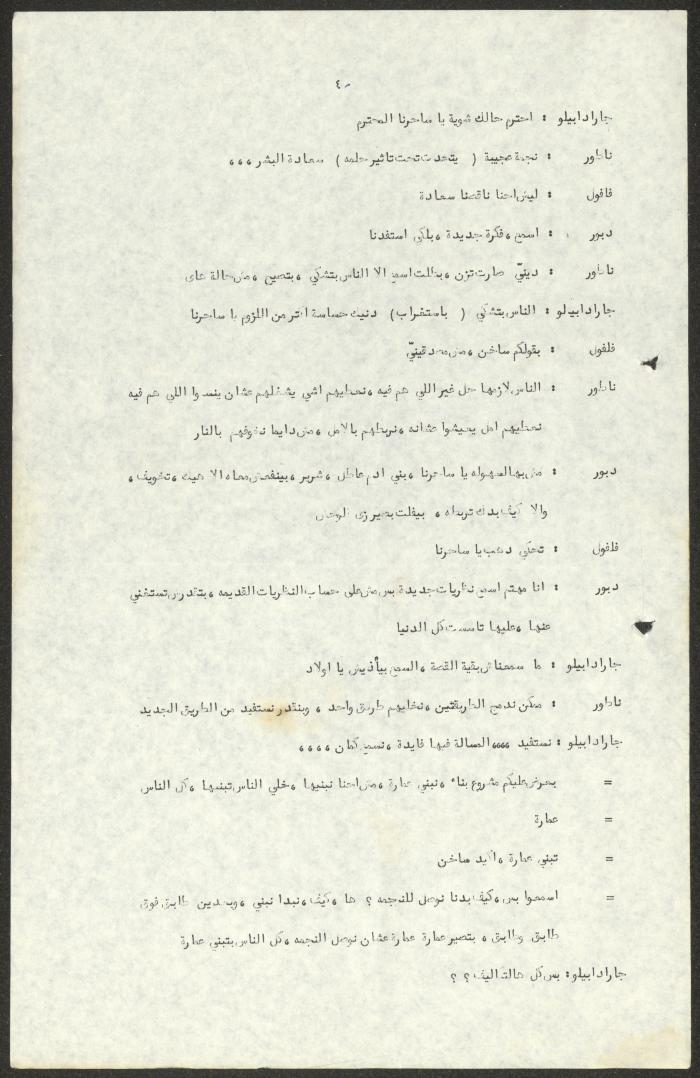 ٤
جارادابيلو : احترم حالك شوية يا ساحرنا المحترم
ناطور : نجمة عجيبة ( يتحدث تحت تاثير حلمه ) سعادة البشر ،،،
فلفول : ليش احنا ناقصنا سعادة
دبور : اسمع ، فكرة جديدة ، بلكي استفدنا
ناطور : دينيّ صارت تزن ، بطلت اسمع الا الناس بتشكي ، بتصيح ، مش حالة هاى
جارادابيلو : الناس بتشكي ( باستغراب ) دنيك حساسة اكتر من اللزوم يا ساحرنا
فلفول : بقولكم ساخن ، مش مصدقينيّ
ناطور : الناس لازمها حل غير اللي هم فيه ، نعطيهم اشي يشغلهم عشان ينسوا اللي هم فيه
نعطيهم امل يعيشوا عشانه ، نربطهم بالامل ، مش دايما نخوفهم بالنار
دبور : مش بهالسهوله يا ساحرنا ، بني ادم عاطل ، شرير ، بينفعش معاه الا هيك ، تخويف ،
والا كيف بدك تربطه ، بيفلت بصير زى الوحش
فلفول : تحكي دهب يا ساحرنا
دبور : انا مهتم اسمع نظريات جديدة بس مش على حساب النظريات القديمه ، بتقدرش تستغني
عنها ، عليها تاسست كل الدنيا
جارادابيلو : ما سمعناش بقية القصة ، السمع بيأذيش يا اولاد
ناطور : ممكن ندمج الطريقتين ، نخليهم طريق واحد ، وبنقدر نستفيد من الطريق الجديد
جارادابيلو : نستفيد ،،،، المسالة فيها فايدة ، نسمع كمان ،،،،
= بعرض عليكم مشروع بناء ، نبني عمارة ، مش احنا نبنيها ، خلي الناس تبنيها ، كل الناس
= عمارة
= تبني عمارة ، اكيد ساخن
= اسمعوا بس ، كيف بدنا نوصل للنجمه ؟ ها ، كيف ، نبدا نبني ، وبعدين طابق فوق
طابق وطابق ، بتصير عمارة عمارة عشان نوصل النجمه ، كل الناس بتبني عمارة
جارادابيلو : بس كل هالتكاليف ؟ ؟